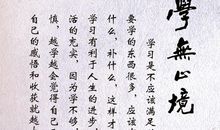 學無止境
学习是不应该满足
要学的东西很多，应该
什么，补什么，这样才
学习有利于人生的进步
活的充实，因为学不够
慎，越学越会觉得自己
自己的感悟和收获就越